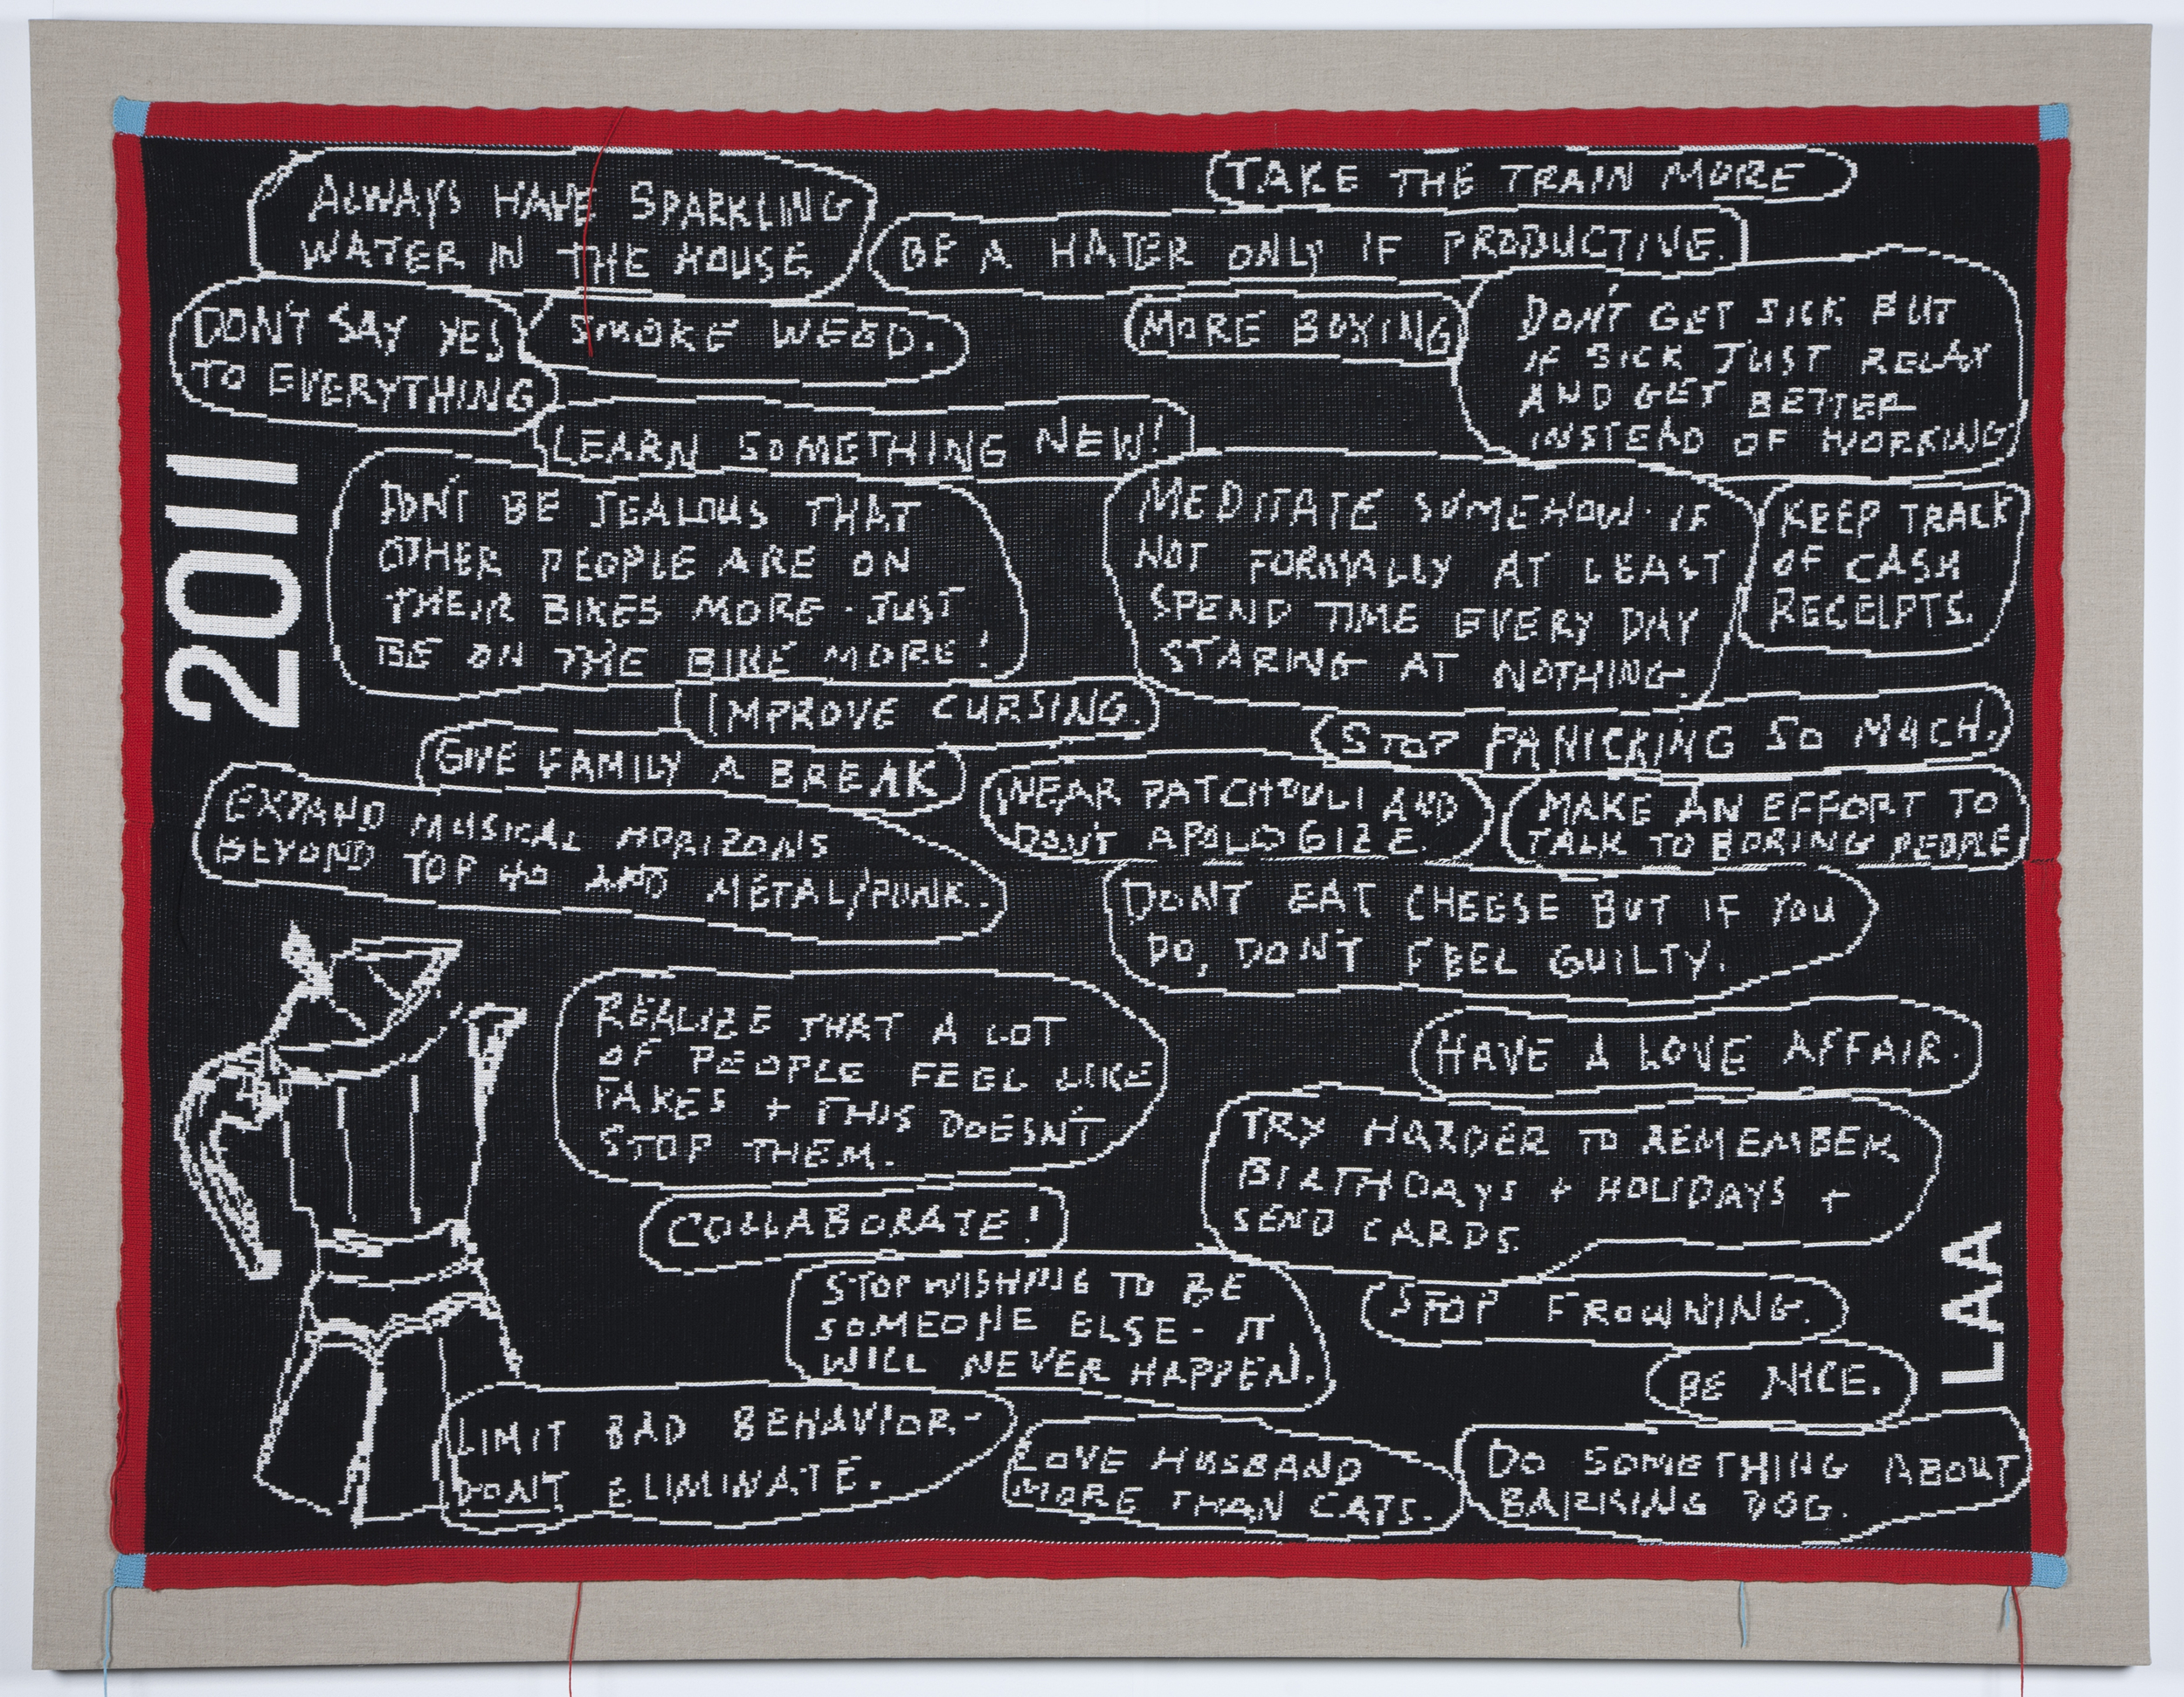 ALWAYS HAVE SPARKLING
WATER IN THE HOUSE
TAKE THE TRAIN MORE
BE A HATER ONLY IF PRODUCTIVE.
DON'T SAY YES
TO EVERYTHING
SMOKE WEED.
MORE BOXING
DON'T GET SICK BUT
IF SICK JUST RELAX
AND GET BETTER
INSTEAD OF WORKING
LEARN SOMETHING NEW!
2011
DON'T BE JEALOUS THAT
OTHER PEOPLE ARE ON
THEIR BIKES MORE - JUST
BE ON THE BIKE MORE!
MEDITATE SOMEHOW. IF
NOT FORMALLY AT LEAST
SPEND TIME EVERY DAY
STARING AT NOTHING.
KEEP TRACK
OF CASH
RECEIPTS.
IMPROVE CURSING.
STOP PANICKING SO MUCH.
GIVE FAMILY A BREAK
EXPAND MUSICAL HORIZONS
BEYOND TOP 40 AND METAL/PUNK.
WEAR PATCHOULI AND
DON'T APOLOGIZE.
MAKE AN EFFORT TO
TALK TO BORING PEOPLE
DON'T EAT CHEESE BUT IF YOU
DO, DON'T FEEL GUILTY.
REALIZE THAT A LOT
OF PEOPLE FEEL LIKE
FAKES + THIS DOESN'T
STOP THEM.
HAVE A LOVE AFFAIR.
TRY HARDER TO REMEMBER
BIRTHDAYS + HOLIDAYS +
SEND CARDS.
COLLABORATE!
STOP WISHING TO BE
SOMEONE ELSE - IT
WILL NEVER HAPPEN.
STOP FROWNING.
BE NICE.
LAA
LIMIT BAD BEHAVIOR -
DON'T ELIMINATE.
LOVE HUSBAND
MORE THAN CATS.
DO SOMETHING ABOUT
BARKING DOG.